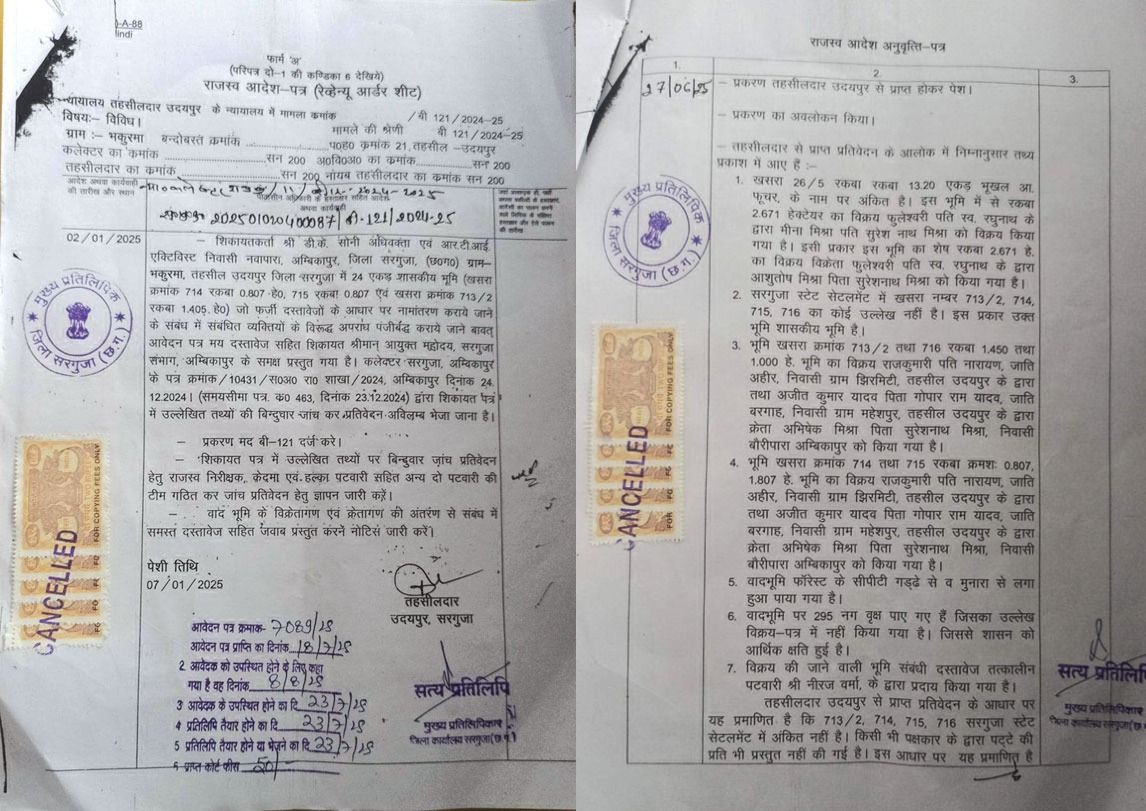 -A-88
lindi
फार्म 'अ'
(परिपत्र दो-1 की कण्डिका 6 देखिये)
राजस्व आदेश-पत्र (रेव्हेन्यू आर्डर शीट)
न्यायालय तहसीलदार उदयपुर के न्यायालय में मामला कमांक / बी 121/2024-25
विषयः- विविध।
मामले की श्रेणी बी 121/2024-25
ग्राम :- भकुरमा बन्दोबस्त क्रमांक प0ह0 क्रमांक 21, तहसील -उदयपुर
कलेक्टर का कमांक सन 200 अ0वि0अ0 का कमांक सन 200
तहसीलदार का कमांक सन 200 नायब तहसीलदार का कमांक सन 200
आदेश अथवा कार्यवाही
की तारीख और स्थान
पीठासीन अधिकारी के हस्ताक्षर सहित आदेश
अथवा कार्यवाही
202501020400087/बी-121/2024-25
02/01/2025
– शिकायतकर्ता श्री डी.के. सोनी अधिवक्ता एवं आर.टी.आई.
एक्टिविस्ट निवासी नवापारा, अम्बिकापुर, जिला सरगुजा, (छ0ग0) ग्राम-
भकुरमा, तहसील उदयपुर जिला सरगुजा में 24 एकड़ शासकीय भूमि (खसरा
क्रमांक 714 रकबा 0.807 हे0, 715 रकबा 0.807 एवं खसरा क्रमांक 713/2
रकबा 1.405. हे0) जो फर्जी दस्तावेजों के आधार पर नामांतरण कराये जाने
के संबंध में संबधित व्यक्तियों के विरूद्ध अपराध पंजीबद्ध कराये जाने बावत्
आवेदन पत्र मय दस्तावेज सहित शिकायत श्रीमान् आयुक्त महोदय, सरगुजा
संभाग, अम्बिकापुर के समक्ष प्रस्तुत गया है। कलेक्टर सरगुजा, अम्बिकापुर
के पत्र क्रमांक/10431/स0अ0 रा0 शाखा/2024, अम्बिकापुर दिनांक 24.
12.2024। (समयसीमा पत्र. क0 463, दिनांक 23.12.2024) द्वारा शिकायत पत्र
में उल्लेखित तथ्यों की बिन्दुवार जांच कर प्रतिवेदन अविलम्ब भेजा जाना है।
– प्रकरण मद बी-121 दर्ज करे।
– शिकायत पत्र में उल्लेखित तथ्यों पर बिन्दुवार जांच प्रतिवेदन
हेतु राजस्व निरीक्षक, केदमा एवं हल्का पटवारी सहित अन्य दो पटवारी की
टीम गठित कर जांच प्रतिवेदन हेतु ज्ञापन जारी करें।
– वाद भूमि के विक्रेतागण एवं क्रेतागण की अंतरण से संबध में
समस्त दस्तावेज सहित जवाब प्रस्तुत करनें नोटिस जारी करें।
पेशी तिथि
07/01/2025
तहसीलदार
उदयपुर, सरगुजा
आवेदन पत्र क्रमाक- 7089/25
आवेदन पत्र प्राप्ति का दिनांक 18/7/25
2 आवेदक को उपस्थित होने के लिए कहा
गया है वह दिनांक 8/8/25
3 आवेदक के उपस्थित होने का दि 23/7/25
4 प्रतिलिपि तैयार होने का दि 23/7/25
5 प्रतिलिपि तैयार होने या भेजने का दि 23/7/25
6 प्राप्त कोर्ट फीस 50/-
सत्य प्रतिलिपि
मुख्य प्रतिलिपिकार
जिला कार्यालय सरगुजा (छ.ग.)
मुख्य प्रतिलिपिक
जिला सरगुजा (छ.ग.)
CANCELLED
FOR COPYING FEES ONLY
राजस्व आदेश अनुवृत्ति-पत्र
1. 2. 3.
27/06/25
– प्रकरण तहसीलदार उदयपुर से प्राप्त होकर पेश।
– प्रकरण का अवलोकन किया।
– तहसीलदार से प्राप्त प्रतिवेदन के आलोक में निम्नानुसार तथ्य
प्रकाश में आए हैं :-
1. खसरा 26/5 रकबा रकबा 13.20 एकड़ भूखल आ.
फूचर, के नाम पर अंकित है। इस भूमि में से रकबा
2.671 हेक्टेयर का विक्रय फुलेश्वरी पति स्व. रघुनाथ के
द्वारा मीना मिश्रा पति सुरेश नाथ मिश्रा को विक्रय किया
गया है। इसी प्रकार इस भूमि का शेष रकबा 2.671 हे.
का विक्रय विक्रेता फुलेश्वरी पति स्व. रघुनाथ के द्वारा
आशुतोष मिश्रा पिता सुरेशनाथ मिश्रा को किया गया है।
2. सरगुजा स्टेट सेटलमेंट में खसरा नम्बर 713/2, 714,
715, 716 का कोई उल्लेख नहीं है। इस प्रकार उक्त
भूमि शासकीय भूमि है।
3. भूमि खसरा क्रमांक 713/2 तथा 716 रकबा 1.450 तथा
1.000 हे. भूमि का विक्रय राजकुमारी पति नारायण, जाति
अहीर, निवासी ग्राम झिरमिटी, तहसील उदयपुर के द्वारा
तथा अजीत कुमार यादव पिता गोपार राम यादव, जाति
बरगाह, निवासी ग्राम महेशपुर, तहसील उदयपुर के द्वारा
क्रेता अभिषेक मिश्रा पिता सुरेशनाथ मिश्रा, निवासी
बौरीपारा अम्बिकापुर को किया गया है।
4. भूमि खसरा क्रमांक 714 तथा 715 रकबा क्रमशः 0.807,
1.807 हे. भूमि का विक्रय राजकुमारी पति नारायण, जाति
अहीर, निवासी ग्राम झिरमिटी, तहसील उदयपुर के द्वारा
तथा अजीत कुमार यादव पिता गोपार राम यादव, जाति
बरगाह, निवासी ग्राम महेशपुर, तहसील उदयपुर के द्वारा
क्रेता अभिषेक मिश्रा पिता सुरेशनाथ मिश्रा, निवासी
बौरीपारा अम्बिकापुर को किया गया है।
5. वादभूमि फॉरेस्ट के सीपीटी गड्ढे से व मुनारा से लगा
हुआ पाया गया है।
6. वादभूमि पर 295 नग वृक्ष पाए गए हैं जिसका उल्लेख
विक्रय-पत्र में नहीं किया गया है। जिससे शासन को
आर्थिक क्षति हुई है।
7. विक्रय की जाने वाली भूमि संबंधी दस्तावेज तत्कालीन
पटवारी श्री नीरज वर्मा, के द्वारा प्रदाय किया गया है।
तहसीलदार उदयपुर से प्राप्त प्रतिवेदन के आधार पर
यह प्रमाणित है कि 713/2, 714, 715, 716 सरगुजा स्टेट
सेटलमेंट में अंकित नहीं है। किसी भी पक्षकार के द्वारा पट्टे की
प्रति भी प्रस्तुत नहीं की गई है। इस आधार पर यह प्रमाणित है
मुख्य प्रतिलिपिक
जिला सरगुजा (छ.ग.)
CANCELLED
FOR COPYING FEES ONLY
सत्य प्रतिलिपि
मुख्य प्रतिलिपिकार
जिला कार्यालय सरगुजा